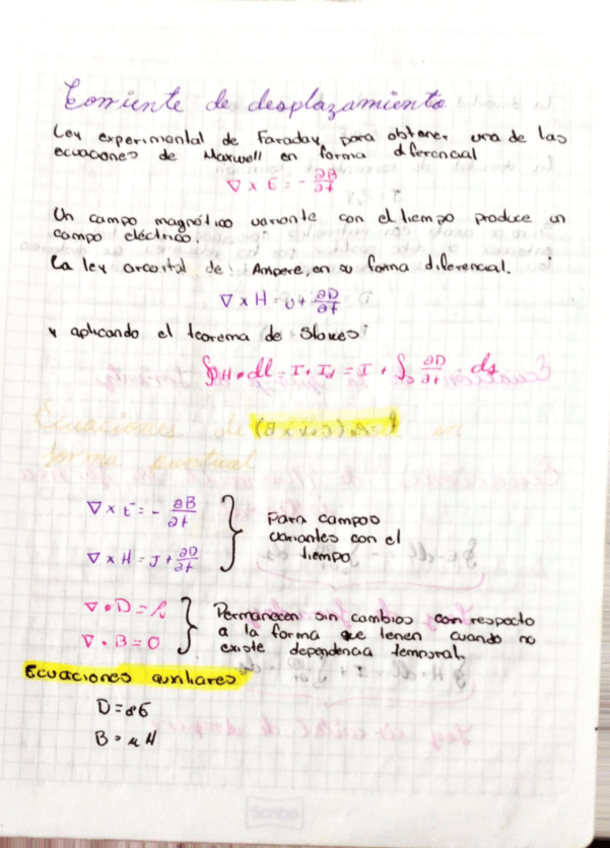 Corriente de desplazamiento
Ley experimental de Faraday para obtener una de las
ecuaciones de Maxwell en forma diferencial
∇ × E = - ∂B/∂t
Un campo magnético variante con el tiempo produce un
campo eléctrico.
La ley circuital de Ampere, en su forma diferencial.
∇ × H = J + ∂D/∂t
y aplicando el teorema de Stokes:
∮ H • dl = I + Id = I + ∫s ∂D/∂t ds
Ecuaciones de en
forma puntual
∇ × E = - ∂B/∂t
∇ × H = J + ∂D/∂t
Para campos
variantes con el
tiempo
∇ • D = ρv
∇ • B = 0
Permanecen sin cambios con respecto
a la forma que tenen cuando no
existe dependencia temporal.
Ecuaciones auxiliares
D = εE
B = μH
Scribe